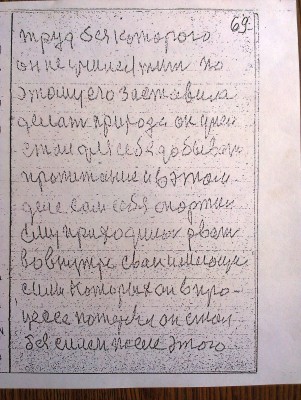 69
труд без которого
он не умеет жит по
этому его заставила
делат природа он умел
стал для себя добыват
пропитание и в этом
деле сам себя спортил
ему приходилос рват
во внутре сваи
силы которых он в про-
цесе потерял он стал
без силен после этого